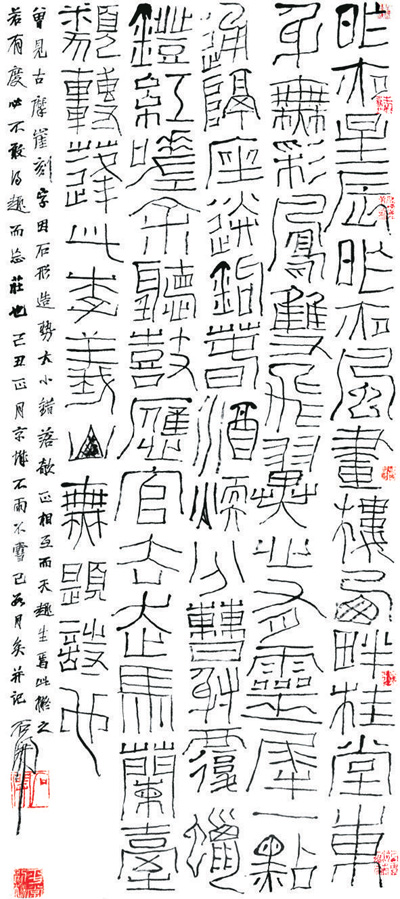 昨夜星辰昨夜風畫樓西畔桂堂東
身無彩鳳雙飛翼心有靈犀一點
通隔座送鉤春酒暖分曹射覆蠟
鐙紅嗟余聽鼓應官去走馬蘭臺
類轉蓬此李義山無題詩也
曾見古摩崖刻字因石形造勢大小錯落欹正相互而天趣生焉此擬之
若有度必不敢得趣而忘莊也己丑正月京城不雨不雪已數月矣并記 石開